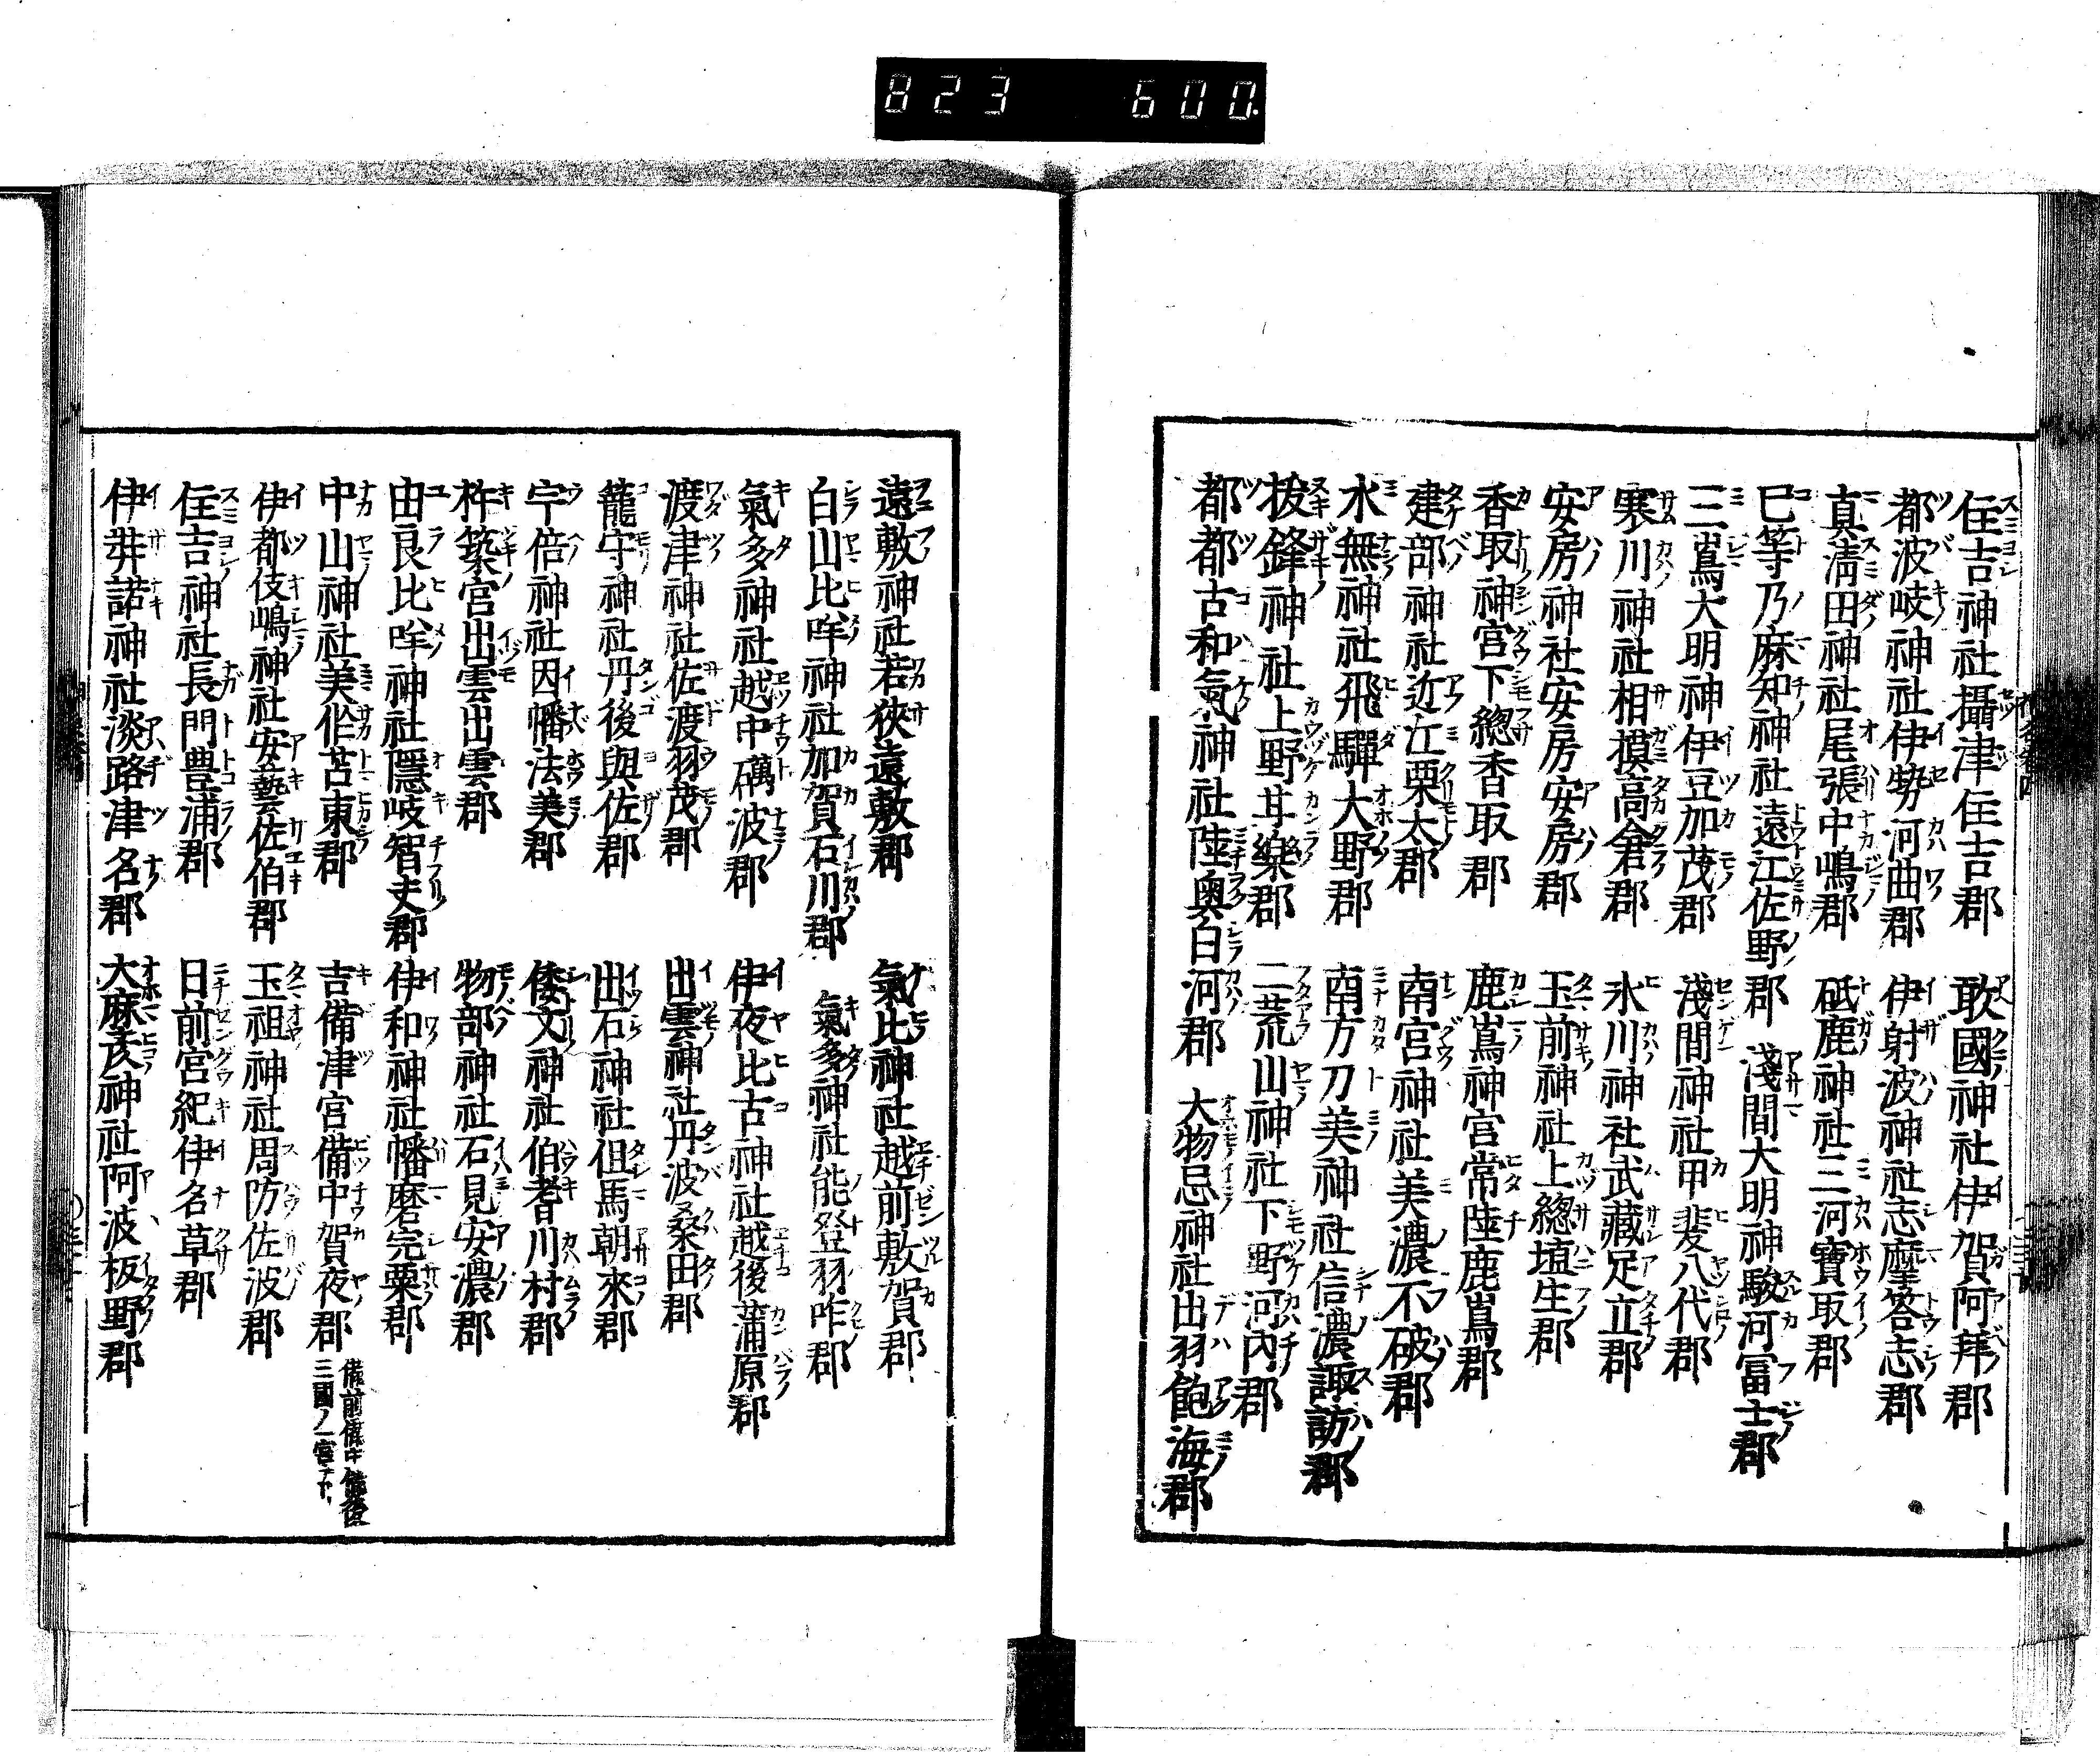 823 600
住吉神社攝津住吉郡 敢國神社伊賀阿拜郡
都波岐神社伊勢河曲郡 伊射波神社志摩答志郡
真淸田神社尾張中嶋郡 砥鹿神社三河寶飯郡
巳等乃麻知神社遠江佐野郡 淺間大明神駿河冨士郡
三嶌大明神伊豆加茂郡 淺間神社甲斐八代郡
寒川神社相摸高倉郡 氷川神社武藏足立郡
安房神社安房安房郡 玉前神社上總埴生郡
香取神宮下總香取郡 鹿嶌神宮常陸鹿嶌郡
建部神社近江栗太郡 南宮神社美濃不破郡
水無神社飛驒大野郡 南方刀美神社信濃諏訪郡
拔鋒神社上野甘樂郡 二荒山神社下野河内郡
都都古和氣神社陸奥白河郡 大物忌神社出羽飽海郡
遠敷神社若狹遠敷郡 氣比神社越前敷賀郡
白山比咩神社加賀石川郡 氣多神社能登羽咋郡
氣多神社越中礪波郡 伊夜比古神社越後蒲原郡
渡津神社佐渡羽茂郡 出雲神社丹波桑田郡
籠守神社丹後與佐郡 出石神社但馬朝來郡
宇倍神社因幡法美郡 倭文神社伯耆川村郡
杵築宮出雲出雲郡 物部神社石見安濃郡
由良比咩神社隱岐智夫郡 伊和神社幡磨完粟郡
中山神社美作苫東郡 吉備津宮備中賀夜郡 備前備中備後三國ノ一宮ナリ
伊都伎嶋神社安藝佐伯郡 玉祖神社周防佐波郡
住吉神社長門豊浦郡 日前宮紀伊名草郡
伊弉諾神社淡路津名郡 大麻彦神社阿波板野郡